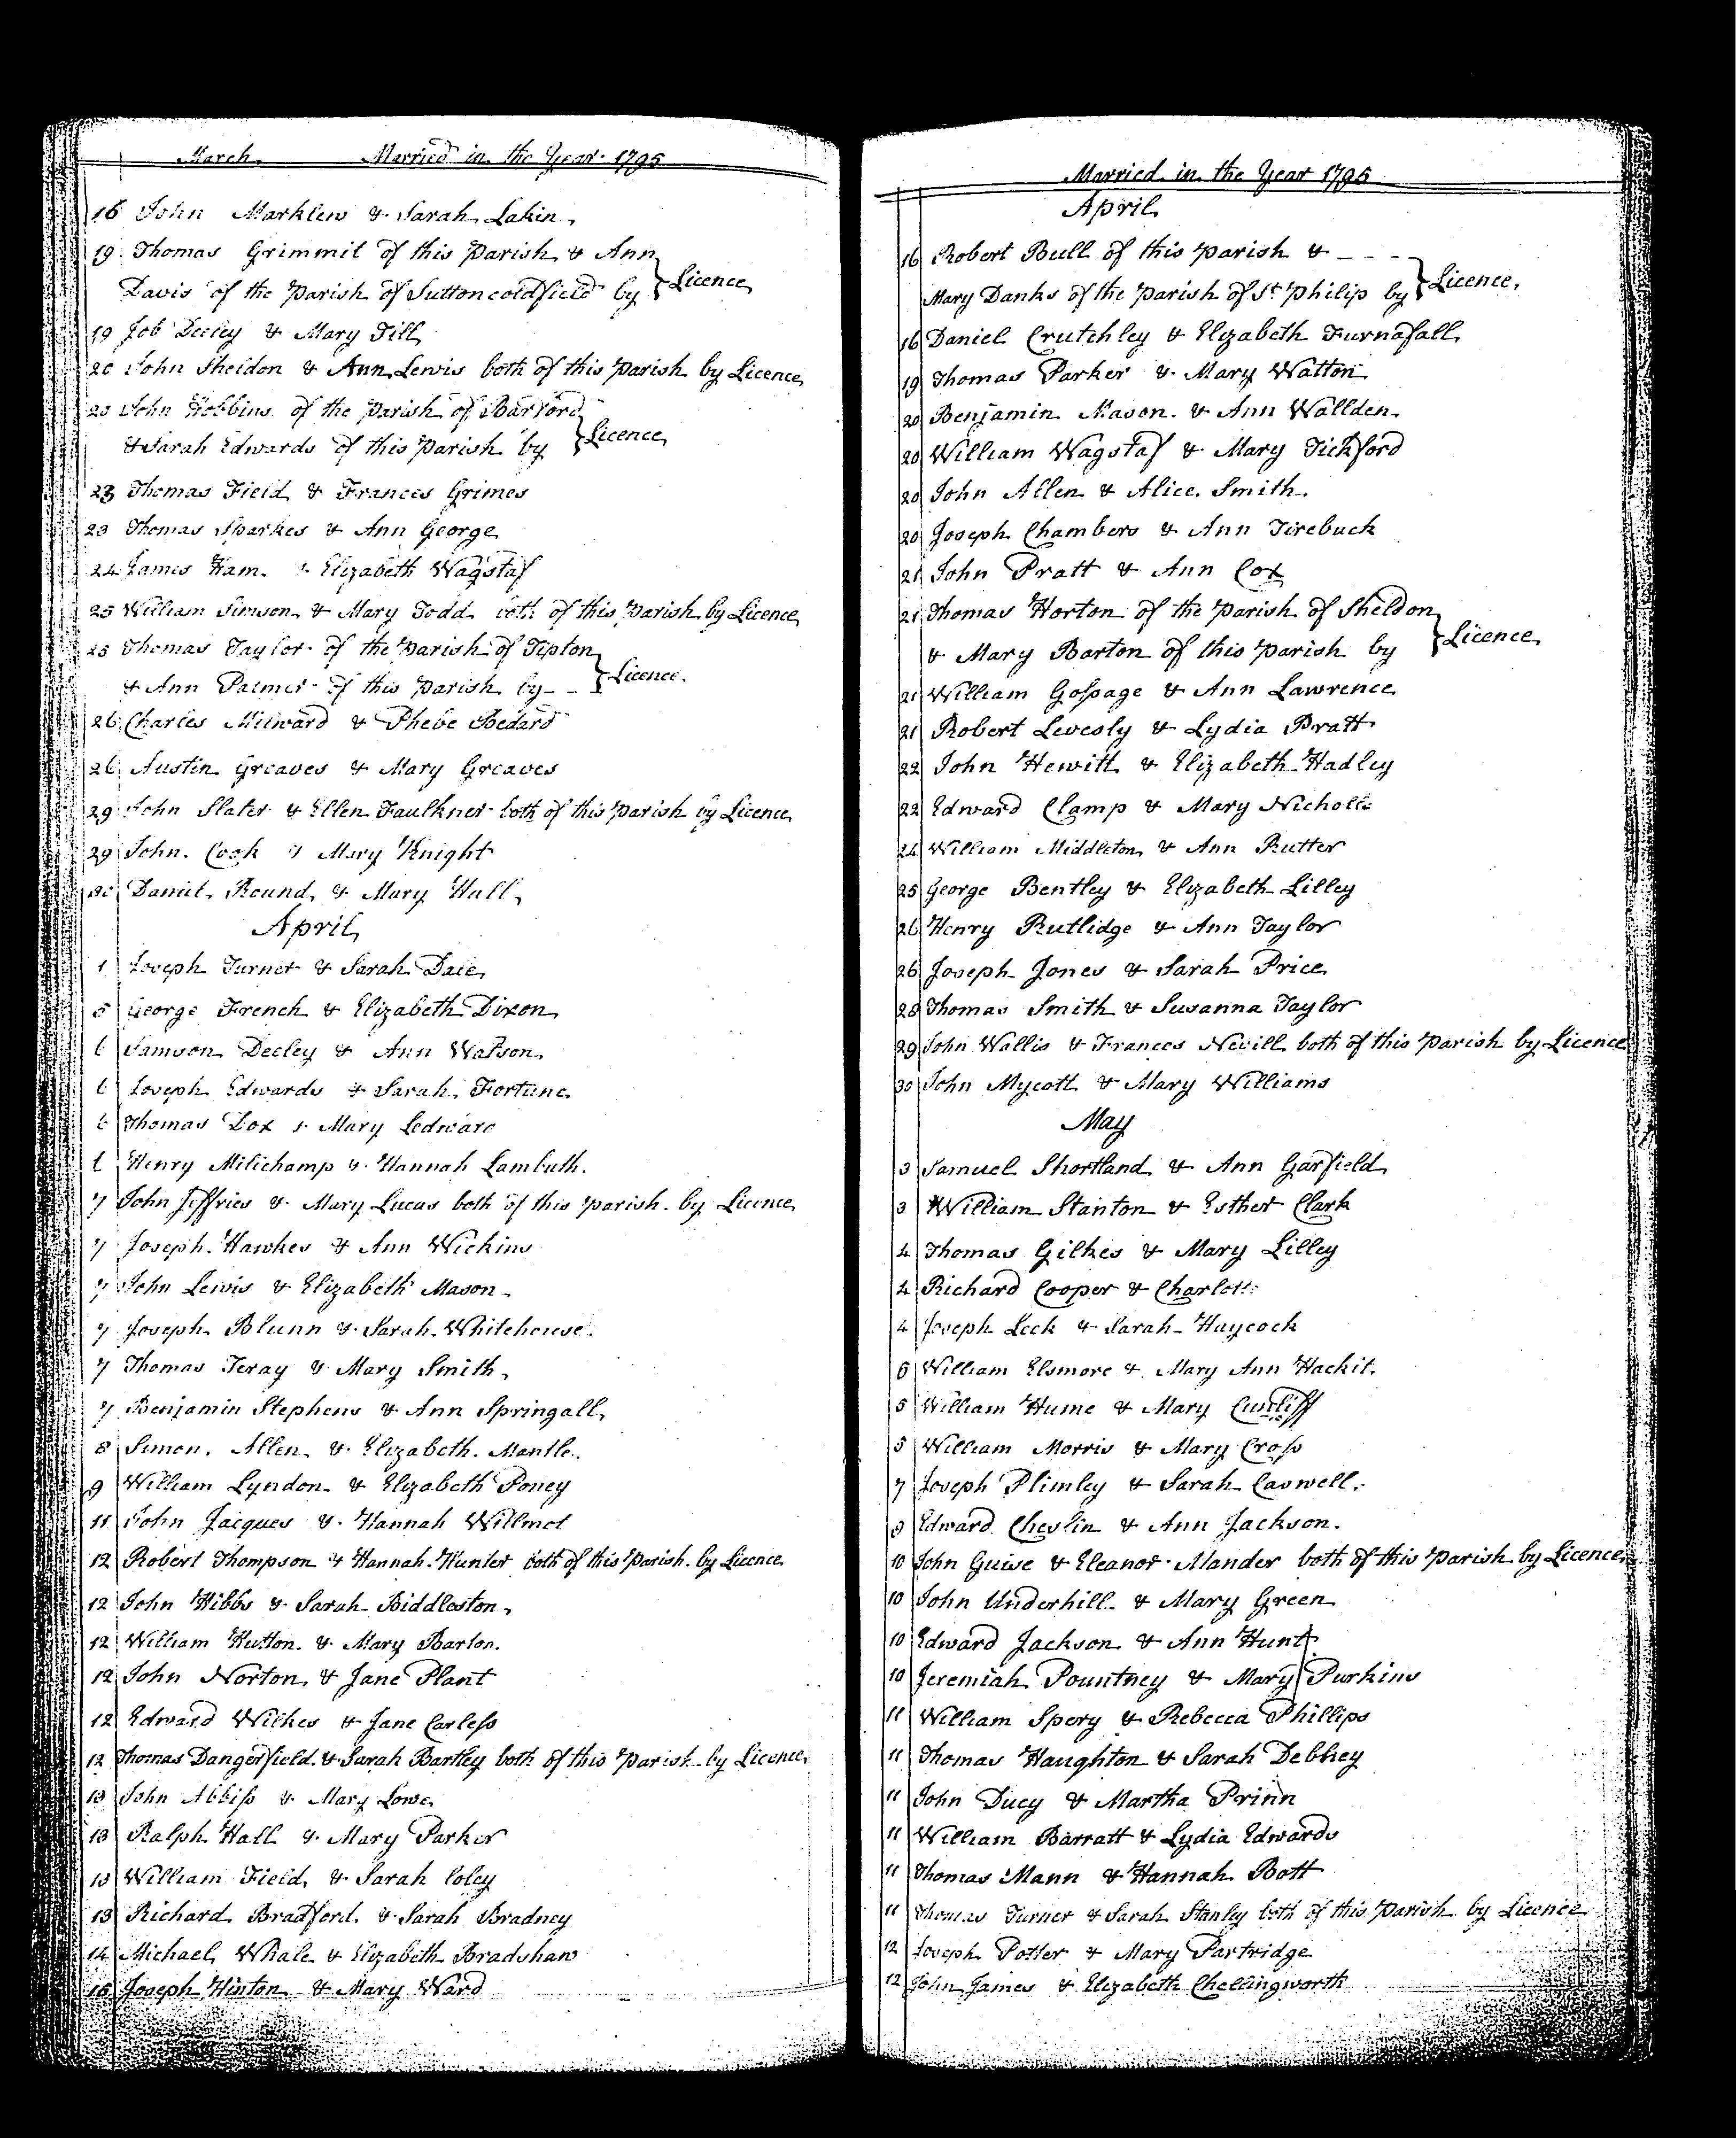 March Married in the Year 1795
16 John Marklew & Sarah Lakin
19 Thomas Grimmit of this Parish & Ann
Davis of the Parish of Suttoncoldfield by } Licence
19 Job Deeley & Mary Till
20 John Sheldon & Ann Lewis both of this Parish by Licence
20 John Hobbins of the Parish of Barford
& Sarah Edwards of this Parish by } Licence
23 Thomas Field & Frances Grimes
23 Thomas Sparkes & Ann George
24 James Ham & Elizabeth Wagstaf
25 William Simson & Mary Todd both of this Parish by Licence
25 Thomas Taylor of the Parish of Tipton
& Ann Palmer of this Parish by - - } Licence.
26 Charles Milward & Phebe Bedard
26 Austin Greaves & Mary Greaves
29 John Slater & Ellen Faulkner both of this Parish by Licence
29 John Cook & Mary Knight
30 Daniel Round & Mary Hall
April
1 Joseph Turner & Sarah Dale
5 George French & Elizabeth Dixon
6 Samson Deeley & Ann Watson
6 Joseph Edwards & Sarah Fortune
6 Thomas Cox & Mary Ledward
6 Henry Milichamp & Hannah Lambuth.
7 John Jeffries & Mary Lucas both of this Parish by Licence
7 Joseph Hawkes & Ann Wickins
7 John Lewis & Elizabeth Mason
7 Joseph Blunn & Sarah Whitehouse.
7 Thomas Teray & Mary Smith
7 Benjamin Stephens & Ann Springall
8 Simon Allen & Elizabeth Mantle.
9 William Lyndon & Elizabeth Poney
11 John Jacques & Hannah Willmot
12 Robert Thompson & Hannah Hunter both of this Parish by Licence
12 John Hibbs & Sarah Biddleston
12 William Hutton & Mary Barton.
12 John Norton & Jane Plant
12 Edward Wilkes & Jane Carless
12 Thomas Dangerfield & Sarah Bartley both of this Parish by Licence
13 John Abbiss & Mary Lowe
13 Ralph Hall & Mary Parker
13 William Field & Sarah Coley
13 Richard Bradford & Sarah Bradney
14 Michael Whale & Elizabeth Bradshaw
15 Joseph Hinton & Mary Ward
Married in the Year 1795
April
16 Robert Bull of this Parish & - - - -
Mary Danks of the Parish of St Philip by } Licence.
16 Daniel Crutchley & Elizabeth Furnasall
19 Thomas Parker & Mary Watton
20 Benjamin Mason & Ann Wallden
20 William Wagstaf & Mary Tickford
20 John Allen & Alice Smith
20 Joseph Chambers & Ann Tirebuck
21 John Pratt & Ann Cox
21 Thomas Horton of the Parish of Sheldon
& Mary Barton of this Parish by } Licence
21 William Gossage & Ann Lawrence
21 Robert Levesly & Lydia Pratt
22 John Hewitt & Elizabeth Hadley
22 Edward Clamp & Mary Nicholls
24 William Middleton & Ann Rutter
25 George Bentley & Elizabeth Lilley
26 Henry Rutlidge & Ann Taylor
26 Joseph Jones & Sarah Price
28 Thomas Smith & Susanna Taylor
29 John Wallis & Frances Nevill both of this Parish by Licence
30 John Mycott & Mary Williams
May
3 Samuel Shortland & Ann Garfield
3 William Stanton & Esther Clark
4 Thomas Gilkes & Mary Lilley
4 Richard Cooper & Charlott
4 Joseph Leek & Sarah Haycock
6 William Elsmore & Mary Ann Hackit.
5 William Hume & Mary Cunliff
5 William Morris & Mary Cross
7 Joseph Plimley & Sarah Caswell.
9 Edward Cheslin & Ann Jackson.
10 John Guise & Eleanor Mander both of this Parish by Licence
10 John Underhill & Mary Green
10 Edward Jackson & Ann Hunt
10 Jeremiah Pountney & Mary Purkins
11 William Spery & Rebecca Phillips
11 Thomas Haughton & Sarah Debbey
11 John Ducy & Martha Prinn
11 William Barratt & Lydia Edwards
11 Thomas Mann & Hannah Bott
11 Thomas Turner & Sarah Stanley both of this Parish by Licence
12 Joseph Potter & Mary Partridge
12 John James & Elizabeth Chellingworth